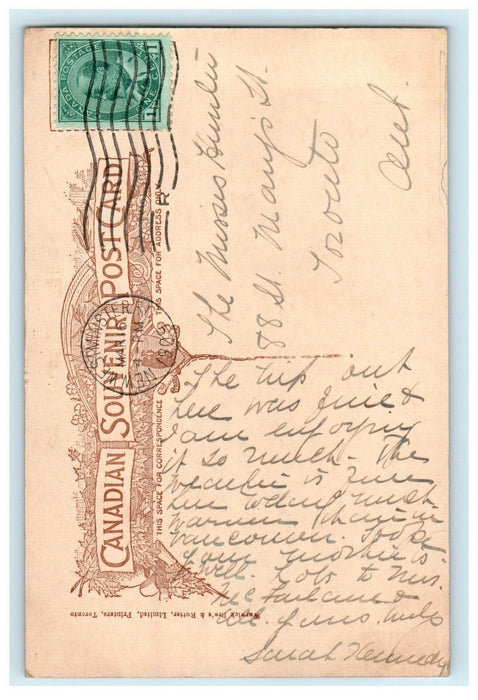 CANADA POSTAGE
ONE CENT
CANADIAN SOUVENIR POST CARD
THIS SPACE FOR CORRESPONDENCE
THIS SPACE FOR ADDRESS ONLY
NEW WESTMINSTER B.C.
MAR 6
PM
Warwick Bro's & Rutter, Limited, Printers, Toronto
The Misses Hunter
88 St. Mary's St.
Toronto
Ont.
The trip out
here was fine &
I am enjoying
it so much. The
weather is fine
here today much
warmer than in
Vancouver. Hope
your mother is
well. Love to Mrs.
McFarlane &
Sarah Kennedy